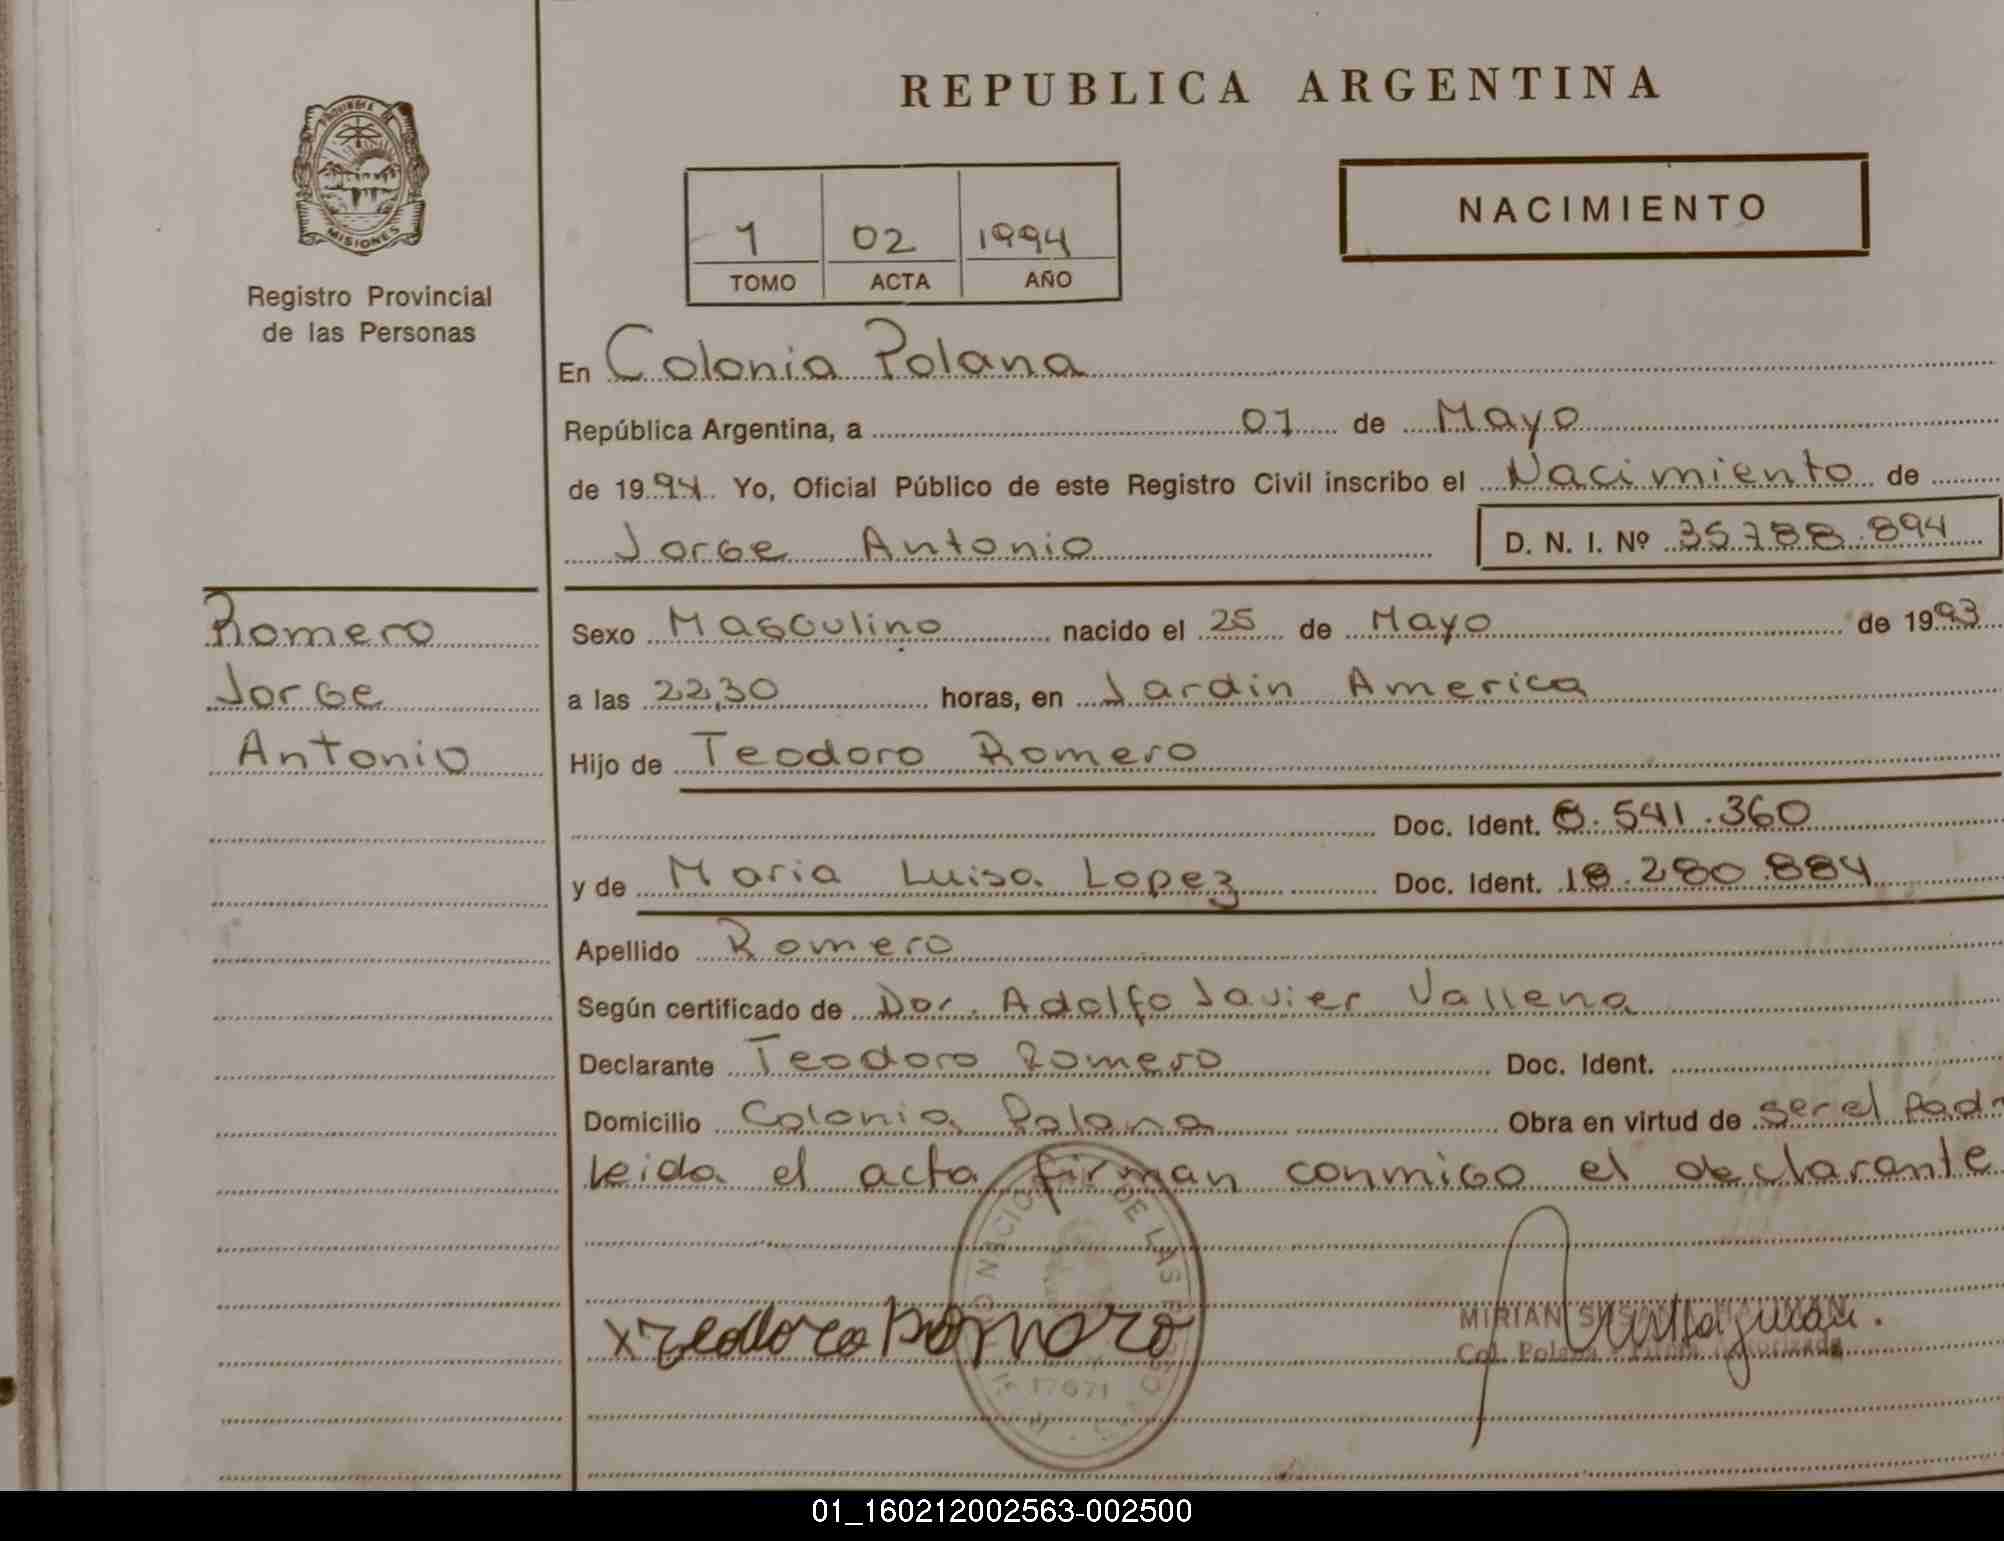 REPUBLICA ARGENTINA
PROVINCIA DE
MISIONES
Registro Provincial
de las Personas
1 02 1994
TOMO ACTA AÑO
NACIMIENTO
En Colonia Polana
República Argentina, a 01 de Mayo
de 1994. Yo, Oficial Público de este Registro Civil inscribo el Nacimiento de
Jorge Antonio D. N. I. Nº 35.788.894
Romero
Jorge
Antonio
Sexo Masculino nacido el 25 de Mayo de 1993
a las 22,30 horas, en Jardin America
Hijo de Teodoro Romero
Doc. Ident. 8.541.360
y de Maria Luisa Lopez Doc. Ident. 18.280.884
Apellido Romero
Según certificado de Dor. Adolfo Javier Vallena
Declarante Teodoro Romero Doc. Ident.
Domicilio Colonia Polana Obra en virtud de ser el Padr
leida el acta firman conmigo el declarante
DE LAS
17671
x Teodoro Romero
MIRIAN
Col. Polana
01_160212002563-002500